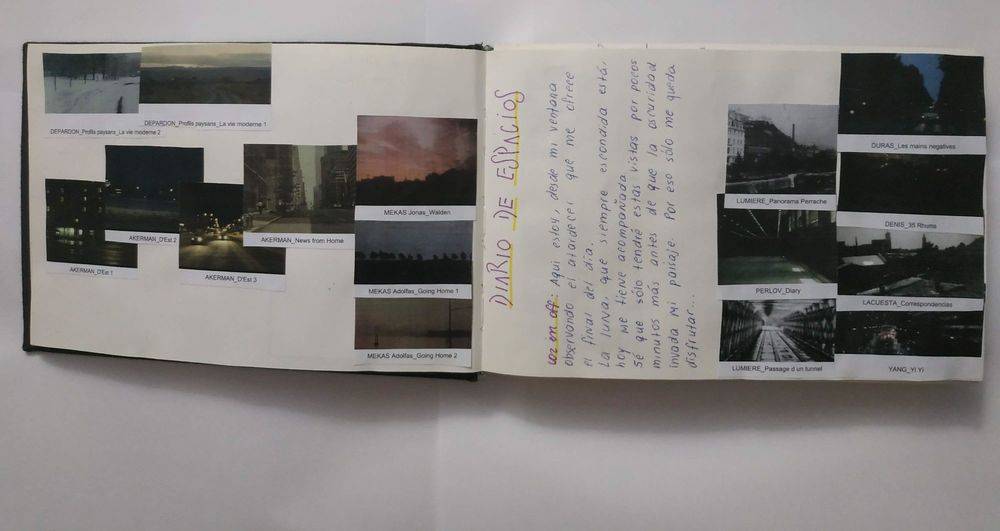 DEPARDON_Profils paysans_La vie moderne 2
DEPARDON_Profils paysans_La vie moderne 1
AKERMAN_D'Est 2
AKERMAN_D'Est 1
AKERMAN_D'Est 3
AKERMAN_News from Home
MEKAS Jonas_Walden
MEKAS Adolfas_Going Home 1
MEKAS Adolfas_Going Home 2
DIARIO DE ESPACIOS
voz en off: Aquí estoy, desde mi ventana
observando el atardecer que me ofrece
el final del día.
La luna, que siempre escondida está,
hoy me tiene acompañada.
Sé que sólo tendré estas vistas por pocos
minutos más antes de que la oscuridad
invada mi paisaje. Por eso sólo me queda
disfrutar...
LUMIERE_Panorama Perrache
PERLOV_Diary
LUMIERE_Passage d un tunnel
DURAS_Les mains negatives
DENIS_35 Rhums
LACUESTA_Correspondencias
YANG_Yi Yi